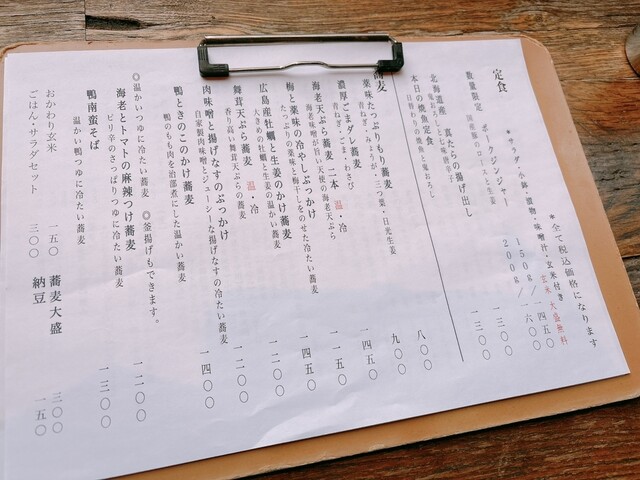 *全て税込価格になります
定食
*サラダ・小鉢・漬物・味噌汁・玄米付き 玄米 大盛無料
数量限定 ポークジンジャー 150g/ 一四五〇
国産豚のロースと生姜 200g/ 一六〇〇
北海道産 真たらの揚げ出し 一三〇〇
鬼おろしと七味唐辛子
本日の焼魚定食 一三〇〇
日替わりの焼魚と鬼おろし
蕎麦
薬味たっぷりもり蕎麦 八〇〇
青ねぎ・みょうが・三つ葉・日光生姜
濃厚ごまダレ蕎麦 九〇〇
青ねぎ・ごま・わさび
海老天ぷら蕎麦 二本 温・冷 一四五〇
海老味噌が旨い天使の海老天ぷら
梅と薬味の冷やしぶっかけ 一一五〇
たっぷりの薬味と梅干しをのせた冷たい蕎麦
広島産牡蠣と生姜のかけ蕎麦 一四五〇
大きめの牡蠣と生姜の温かい蕎麦
舞茸天ぷら蕎麦 温・冷 一二〇〇
香り高い舞茸天ぷらの蕎麦
肉味噌と揚げなすのぶっかけ 一二〇〇
自家製肉味噌とジューシーな揚げなすの冷たい蕎麦
鴨ときのこのかけ蕎麦 一四〇〇
鴨のもも肉を治部煮にした温かい蕎麦
◎温かいつゆに冷たい蕎麦 ◎釜揚げもできます。
海老とトマトの麻辣つけ蕎麦 一二〇〇
ピリ辛のさっぱりつゆに冷たい蕎麦
鴨南蛮そば 一三〇〇
温かい鴨つゆに冷たい蕎麦
おかわり玄米 一五〇 蕎麦大盛 三〇〇
ごはん・サラダセット 三〇〇 納豆 一五〇